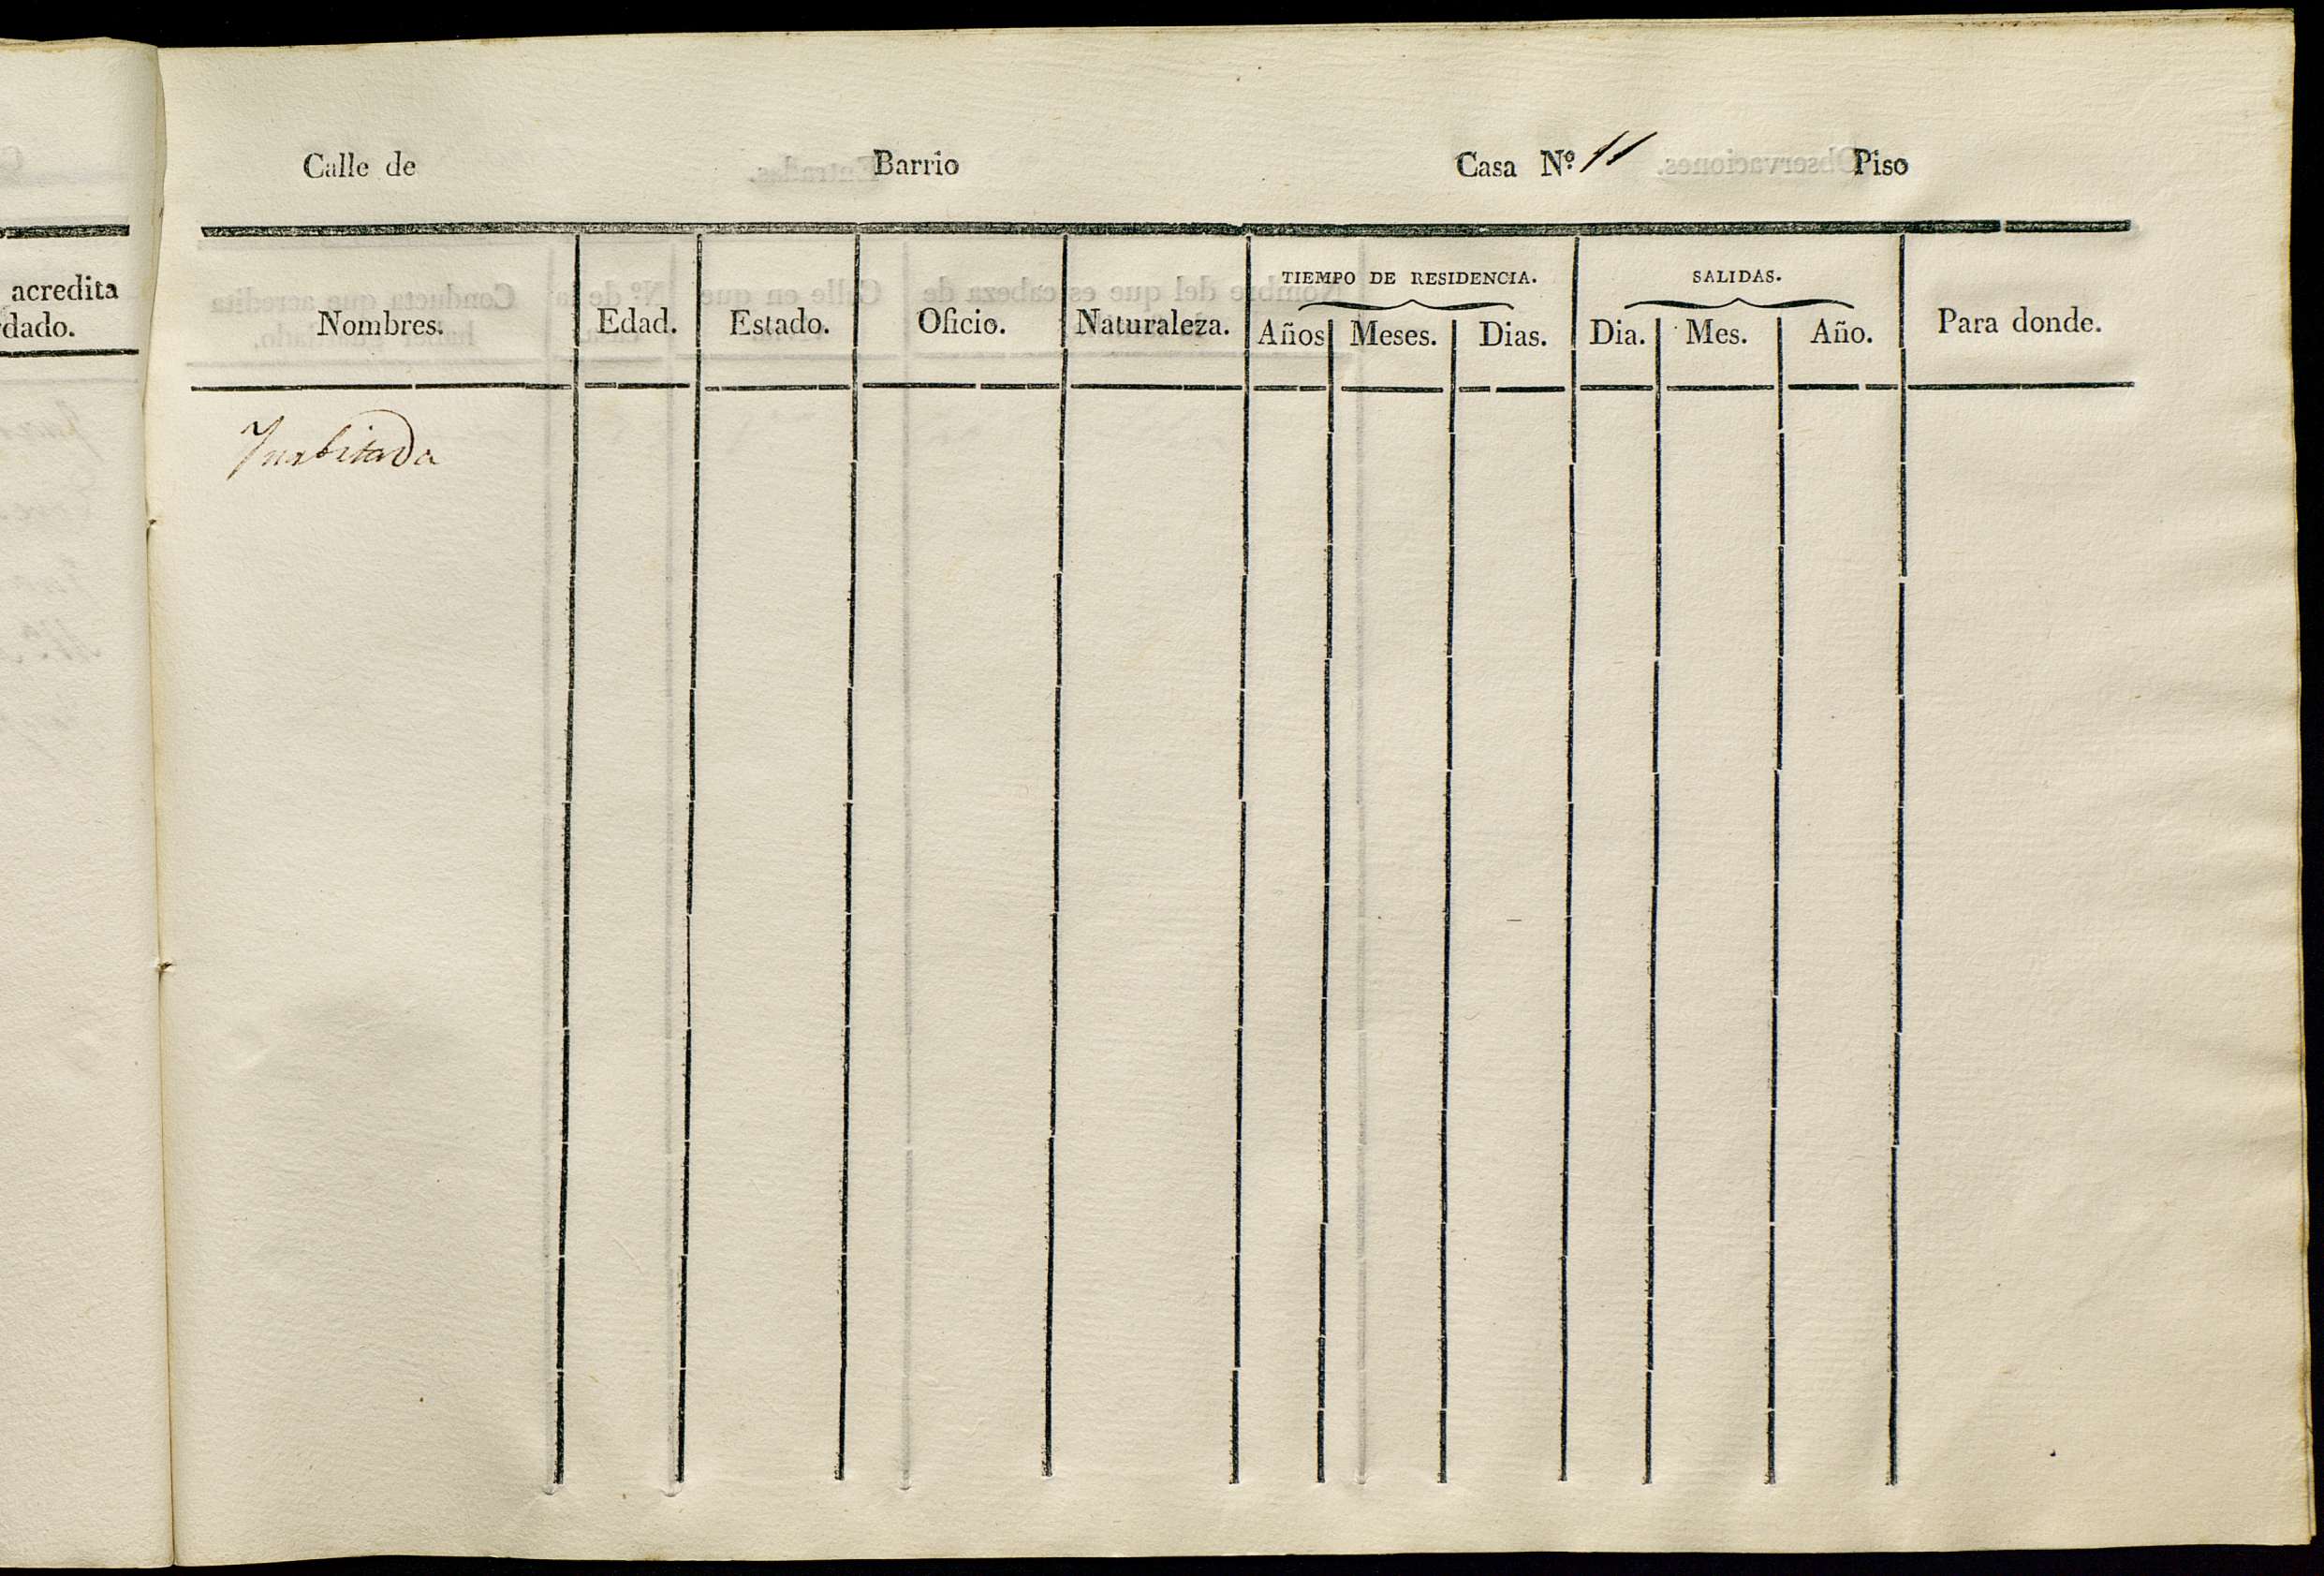 acredita
dado.
Calle de Barrio Casa Nº 11 Piso
TIEMPO DE RESIDENCIA. SALIDAS.
Nombres. Edad. Estado. Oficio. Naturaleza. Años Meses. Dias. Dia. Mes. Año. Para donde.
Inabitada